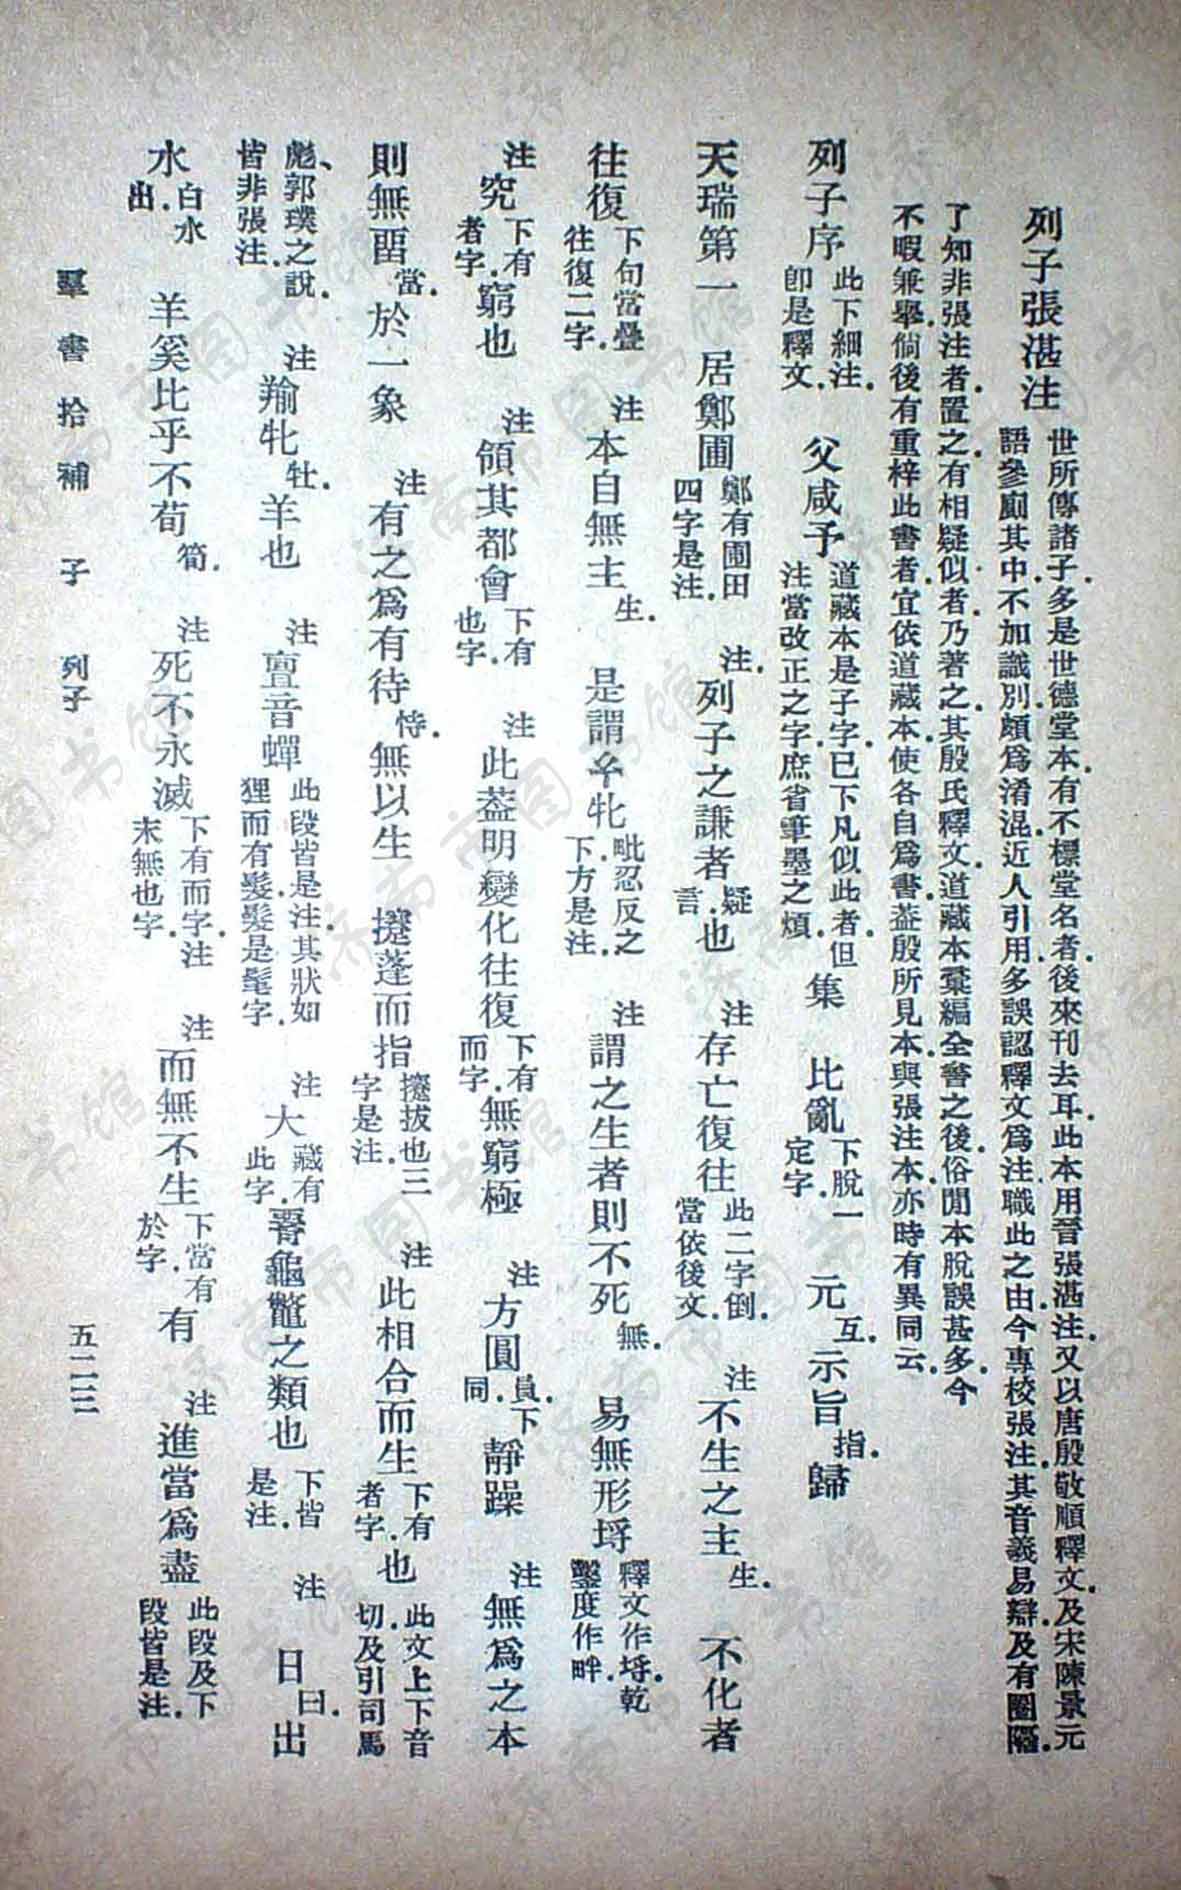 列子張湛注 世所傳諸子．多是世德堂本．有不標堂名者．後來刊去耳．此本用晉張湛注．又以唐殷敬順釋文．及宋陳景元
語參廁其中．不加識別．頗爲淆混．近人引用．多誤認釋文爲注．職此之由．今專校張注．其音義易辯．及有圈隔．
了知非張注者．置之．有相疑似者．乃著之．其殷氏釋文．道藏本彙編全書之後．俗閒本脫誤甚多．今
不暇兼舉．倘後有重梓此書者．宜依道藏本．使各自爲書．葢殷所見本．與張注本．亦時有異同云．
列子序 此下細注．卽是釋文． 父咸予 道藏本是子字．已下凡似此者．但注當改正之字．庶省筆墨之煩． 集 比亂 下脫一定字． 元互．示旨指．歸
天瑞第一 居鄭圃 鄭有圃田四字是注． 注．列子之謙者疑言．也 注存亡復往 此二字倒．當依後文． 注不生之主生． 不化者
往復 下句當疊往復二字． 注本自無主生． 是謂牝 毗忍反之下．方是注． 注謂之生者則不死無． 易無形埒 釋文作埒．乾鑿度作畔．
注究下有者字．窮也 注領其都會下有也字． 注此葢明變化往復下有而字．無窮極 注方圓員．下同．靜躁 注無爲之本
則無畱當．於一象 注有之爲有待恃．無以生 攓蓬而指 攓拔也三字是注． 注此相合而生下有者字．也 此文上下音切．及引司馬
彪、郭璞之說．皆非張注． 注羭牝牡．羊也 注亶音蟬 此段皆是注．其狀如狸而有髮．髮是髦字． 注大藏有此字．䰠龜鼈之類也 下皆是注． 注日曰．出
水白水出． 羊奚比乎不荀筍． 注死不永滅 下有而字．注末無也字． 注而無不生下當有於字．有 注進當爲盡 此段及下段皆是注．
羣書拾補 子 列子 五二三